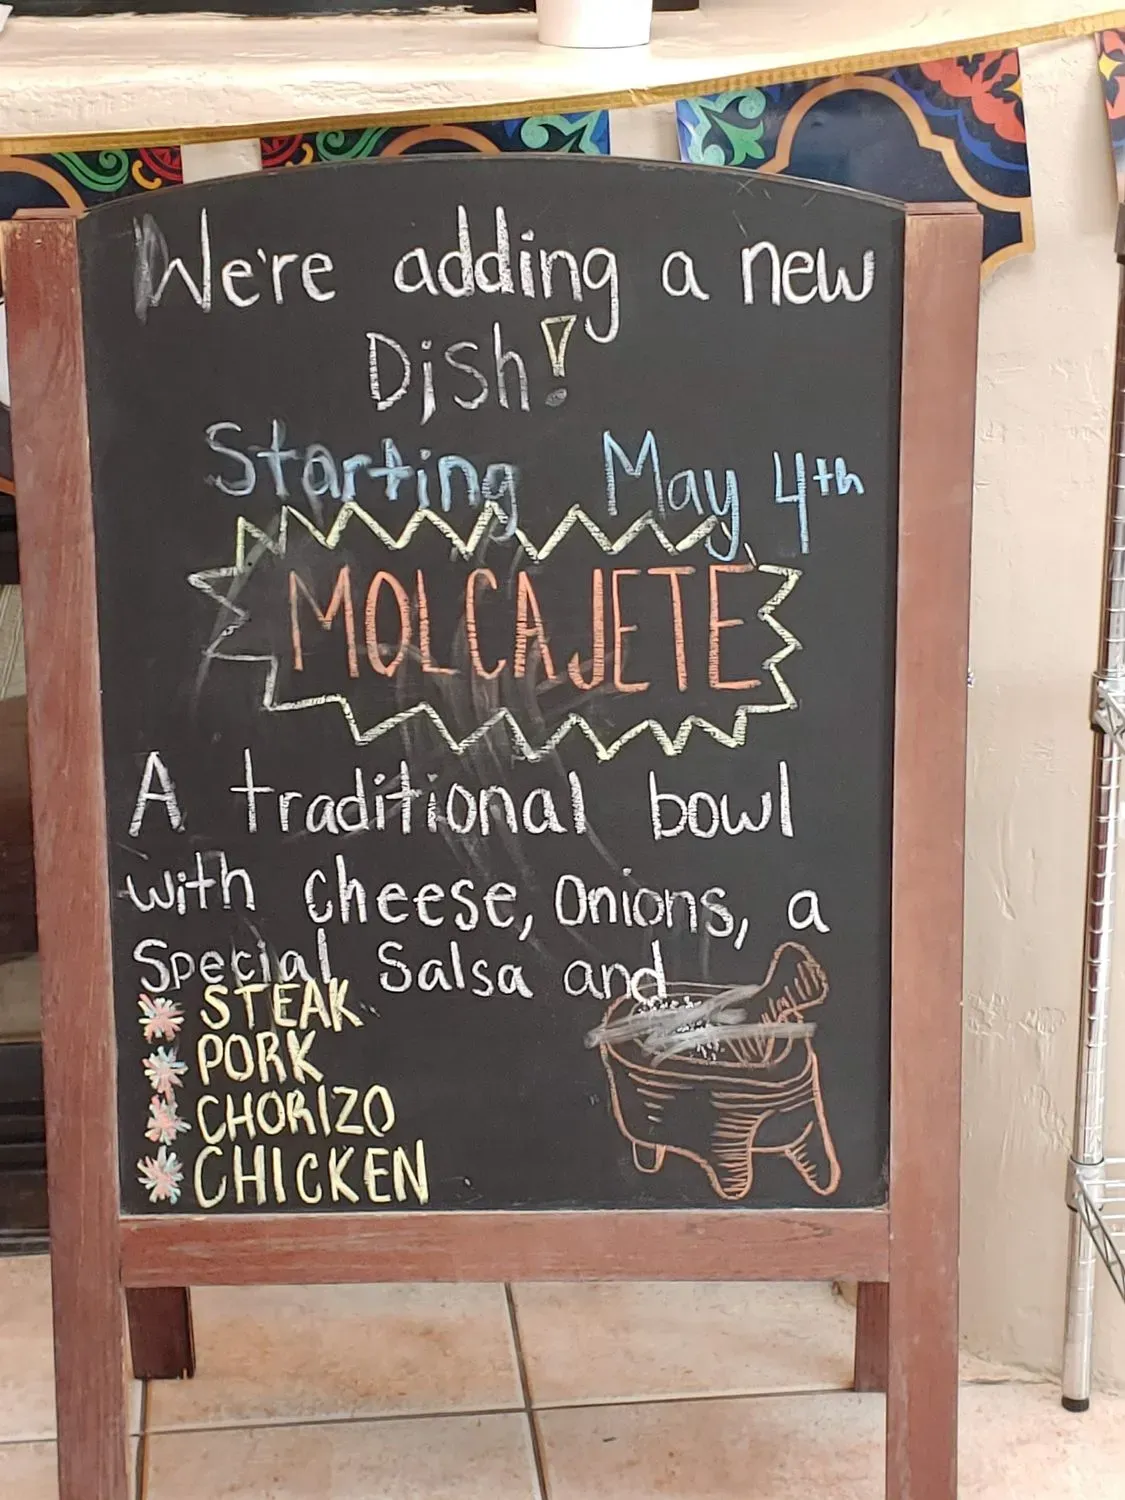 We're adding a new
Dish!
Starting May 4th
MOLCAJETE
A traditional bowl
with cheese, onions, a
Special Salsa and
STEAK
PORK
CHORIZO
CHICKEN